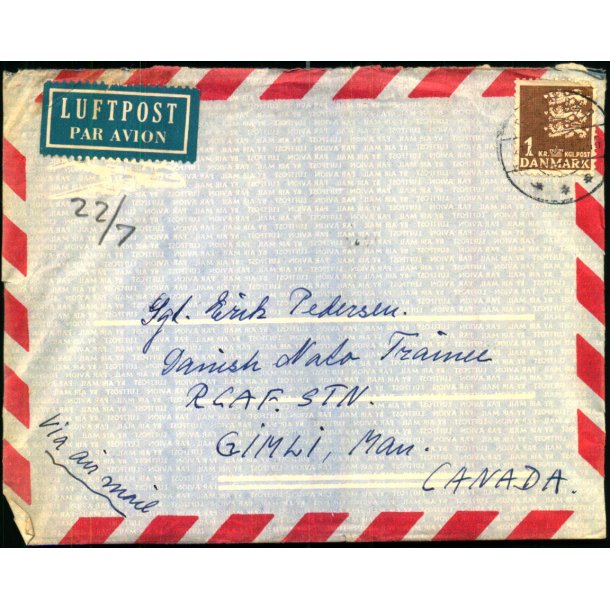 LUFTPOST
PAR AVION
1 KR. KGL.POST
DANMARK
22/7
Sgt. Erik Pedersen.
Danish Nato Trainee
RCAF. STN.
GIMLI, Man.
CANADA.
Via air mail